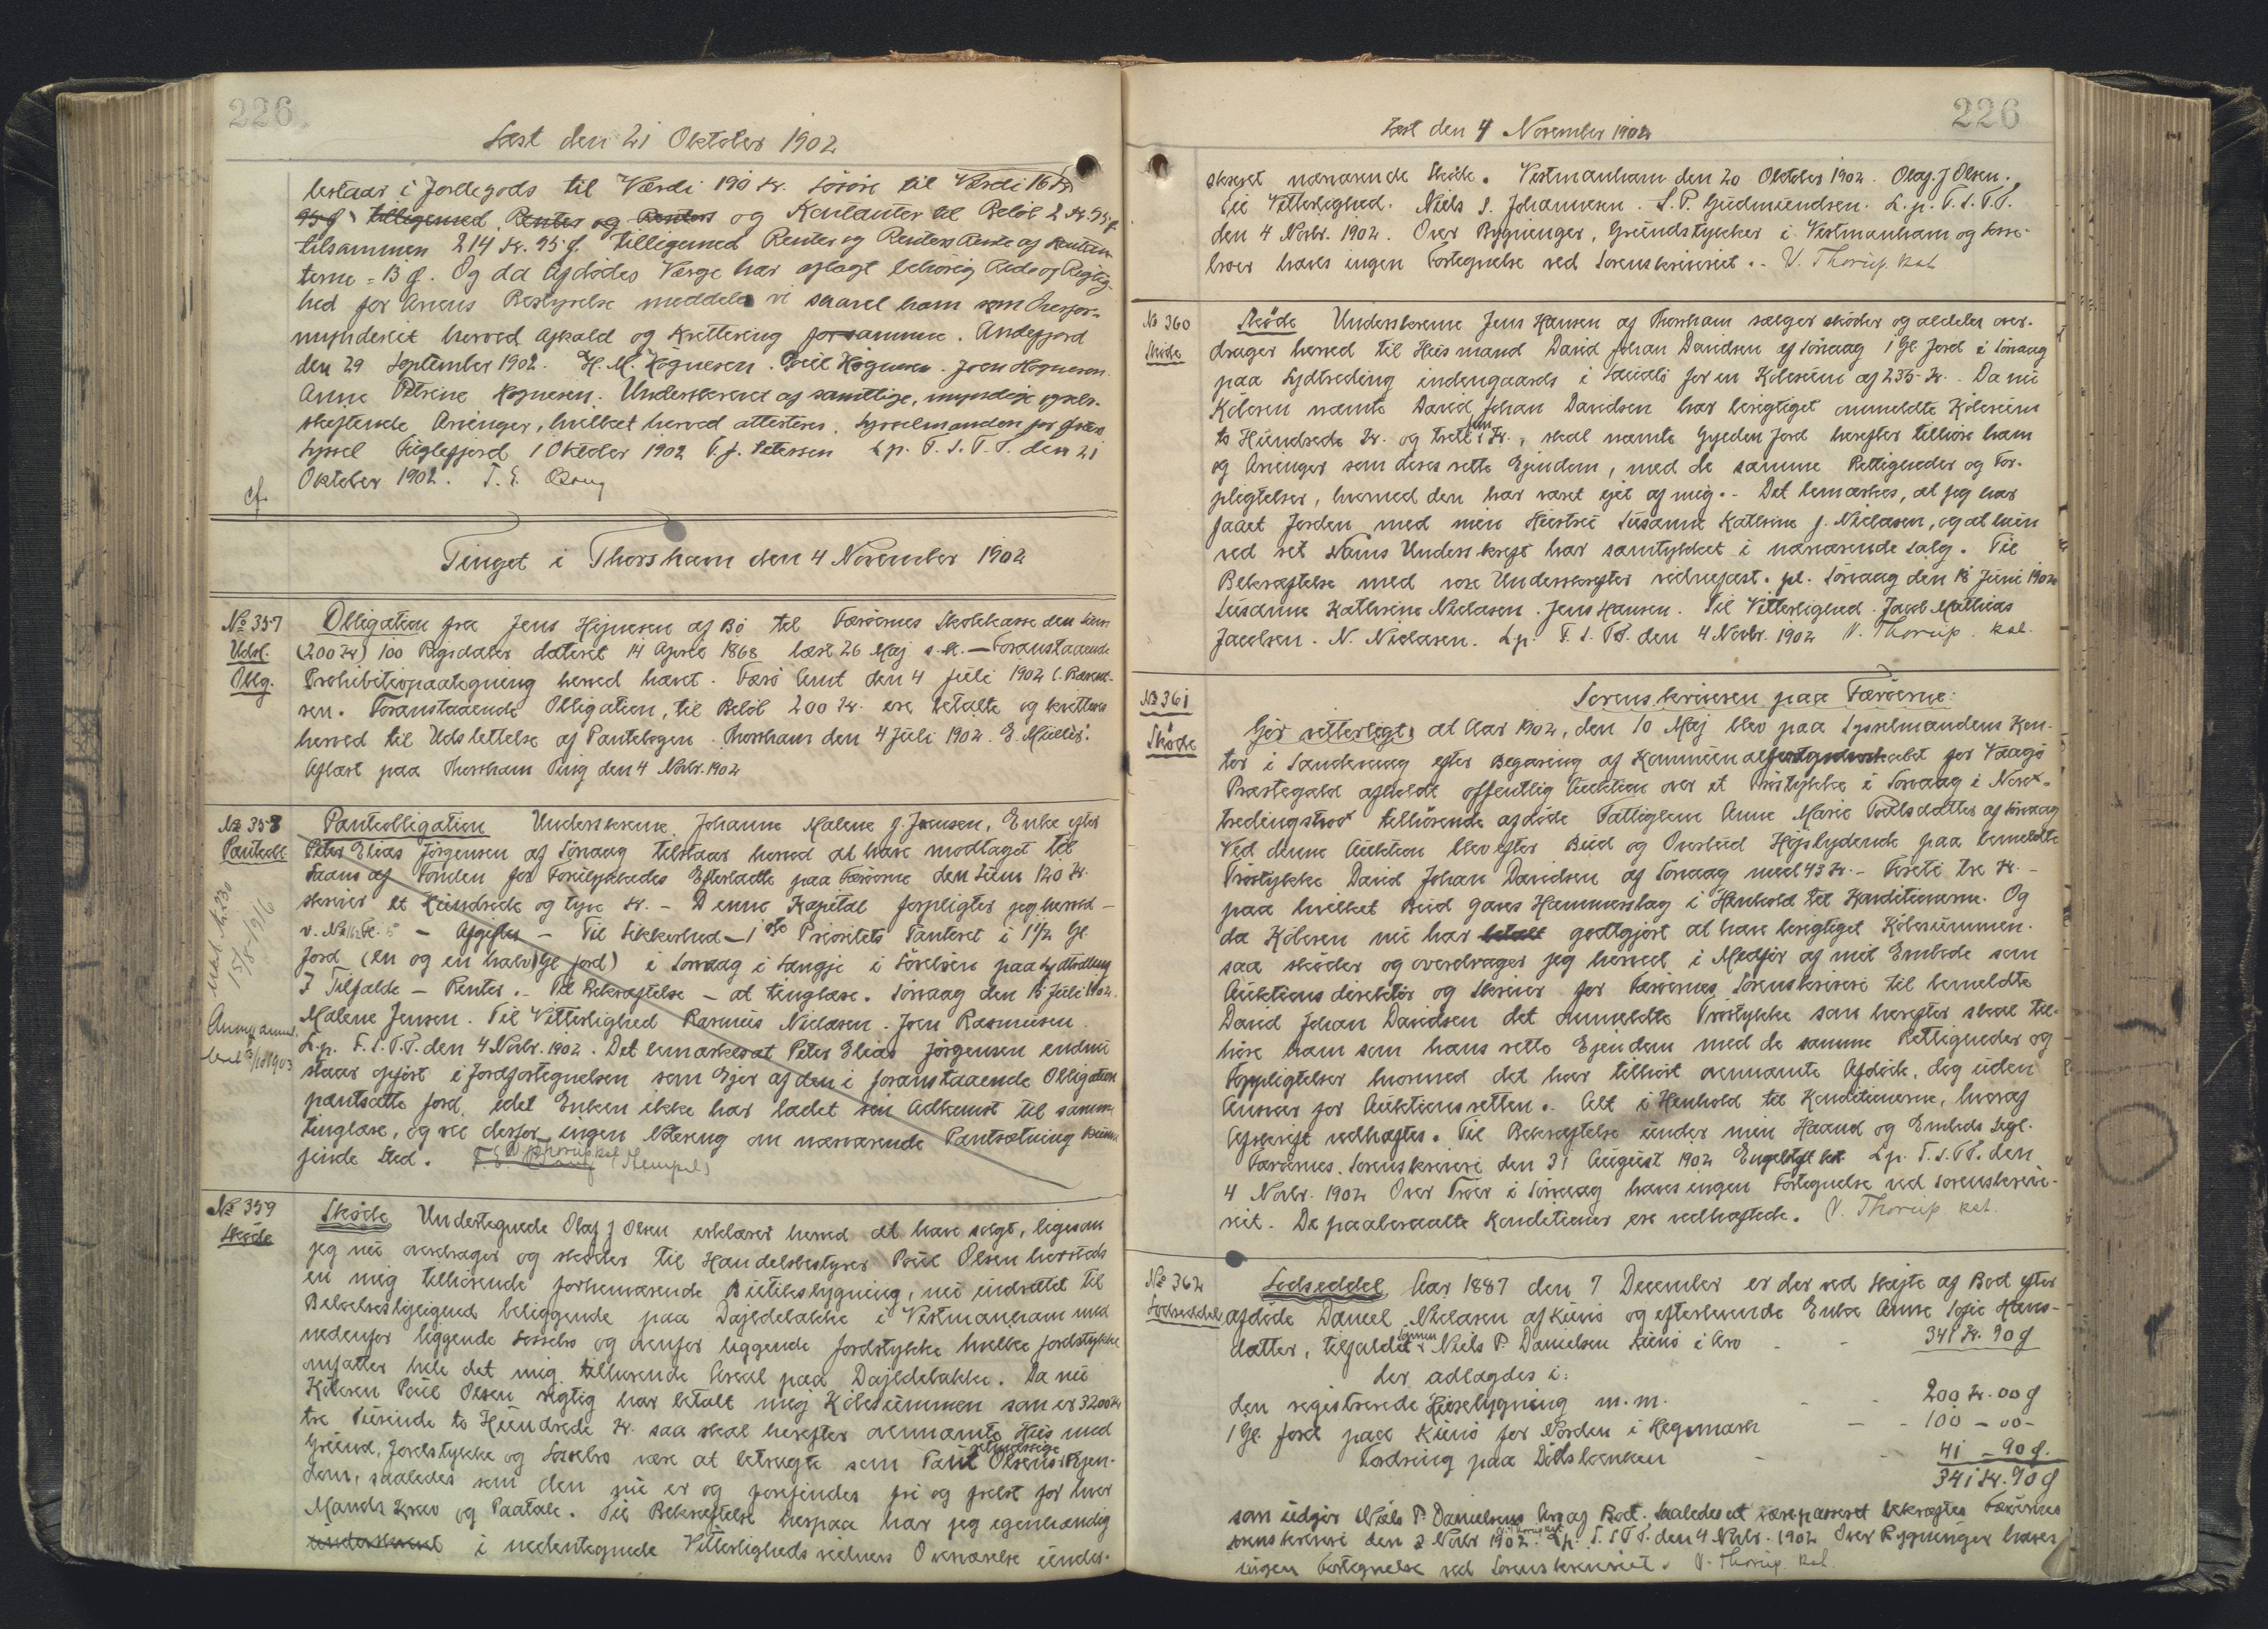 226
Læst den 21 Oktober 1902
bestaar i Jordegods til Værdi 190 Kr. Lösöre til Værdi 16 Kr
95 Ø tilligemed Renter og Renters og Kontanter til Belöb 2 Kr. 95 Ø
tilsammen 214 Kr. 95 Ø. tilligemed Renter og Renters Rente af Kontan
terne = 13 Ø. Og da Afdödes Værge har aflagt behörig Rede og Rigtig-
hed for Arvens Bestyrelse meddeler vi saavel ham som Overfor-
mynderiet herved Afkald og Kvittering for samme. Andefjord
den 29 September 1902. H. M. Högnesen. Poul Högnesen. Joen Högnesen
Anne Petrine Högnesen. Underskrevet af samtlige, myndige og selv-
skiftende Arvinger, hvilket herved attesteres. Sysselmanden for Österö
Syssel Fuglefjord 1 Oktober 1902 P. J. Petersen L. p. T. I. T. T. den 21
Oktober 1902. T. E.
cf.
Tinget i Thorshavn den 4 November 1902
No 357
Udsl.
Oblg.
Obligation fra Jens Hejnesen af Bö til Færöernes Skolekasse den Sum
(200 Kr) 100 Rigsdaler dateret 14 April 1868 læst 26 Maj s. A. — Foranstaaende
Prohibitivpaategning herved hævet. Færö Amt den 4 Juli 1902 C. Bærent-
sen. Foranstaaende Obligation, til Belöb 200 Kr. ere betalte og kvitteres
herved til Udslettelse af Pantebogen. Thorshavn den 4 Juli 1902. E. Müller.
Aflæst paa Thorshavn Ting den 4 Novbr. 1902
No 358
Panteobl
Panteobligation Underskrevne Johanne Malene J. Jensen, Enke efter
Peter Elias Jörgensen af Sörvaag tilstaar herved at have modtaget til
Laans af Fonden for Forulykkedes Efterladte paa Færöerne den Sum 120 Kr.
skriver et Hundrede og tyve Kr. — Denne Kapital forpligter jeg herved —
— Afgifter — Til Sikkerhed — 1ste Prioritets Panteret i 1 1/2 Gl
Jord (en og en halv Gl Jord) i Sörvaag i paa Sydtreding
I Tilfælde — Renter. — Til Bekræftelse — at tinglæse. Sörvaag den 15 Juli 1902.
Malene Jensen. Til Vitterlighed Rasmus Niclasen. Joen Rasmussen.
L. p. T. I. T. T. den 4 Novbr. 1902. Det bemærkes at Peter Elias Jörgensen endnu
staar opfört i Jordfortegnelsen som Ejer af den i foranstaaende Obligation
pantsatte Jord, idet Enken ikke har ladet sin Adkomst til samme
tinglæse, og vil derfor ingen Notering om nærværende Pantsætning kunne
finde Sted. V. Thorup kst (Stempel)
15/8-1916
No 359
Sköde
Sköde Undertegnede Olaf J Olsen erklærer herved at have solgt, ligesom
jeg nu overdrager og sköder til Handelsbestyrer Poul Olsen hersteds
en mig tilhörende forhenværende Butiksbygning, nu indrettet til
Beboelseslejlighed beliggende paa Dajldebakke i Vestmanham med
nedenfor liggende og ovenfor liggende Jordstykke hvilke Jordstykke
omfatter hele det mig tilhörende Areal paa Dajldebakke. Da nu
Köberen Poul Olsen rigtig har betalt mig Köbesummen som er 3200 Kr
tre Tusinde to Hundrede Kr. saa skal herefter ovennævnte Hus med
Grund, Jordstykke og være at betragte som Poul Olsens retmæssige Ejen-
dom, saaledes som den nu er og forefindes fri og frelst for hver
Mands Krav og Paatale. Til Bekræftelse herpaa har jeg egenhændig
underskrevet i nedentegnede Vitterligheds vidners Overværelse under-
226
Læst den 4 November 1902
skrevet nærværende Sköde. Vestmanham den 20 Oktober 1902. Olaf. J Olsen.
Til Vitterlighed. Niels J. Johannesen. S. P. Gudmundsen. L. p. T. I. T. T.
den 4 Novbr. 1902. Over Bygninger, Grundstykker i Vestmanham og
haves ingen Fortegnelse ved Sorenskriveriet. V. Thorup. kst
No 360
Sköde
Sköde Underskrevne Jens Hansen af Thorshavn sælger sköder og aldeles over-
drager herved til Husmand David Johan Davidsen af Sörvaag 1 Gl. Jord i Sörvaag
paa Sydtreding indengaards i for en Köbesum af 235 Kr. Da nu
Köberen nævnte David Johan Davidsen har berigtiget anmeldte Köbesum
to Hundrede Kr. og treti fem Kr., skal nævnte Gylden Jord herefter tilhöre ham
og Arvinger som deres rette Ejendom, med de samme Rettigheder og For-
pligtelser, hvormed den har været ejet af mig. Det bemærkes, at jeg har
faaet Jorden med min Hustru Susanne Kathrine f. Niclasen, og at hun
ved sit Navns Underskrift har samtykket i nærværende Salg. Til
Bekræftelse med vore Underskrifter vedhæftet. pt. Sörvaag den 18 Juni 1902
Susanne Kathrine Niclasen. Jens Hansen. Til Vitterlighed Jacob Mathias
Jacobsen. N. Niclasen. L. p. T. I. T. T. den 4 Novbr. 1902 V. Thorup. kst.
No 361
Sköde
Sorenskriveren paa Færöerne:
Gör vitterligt, at Aar 1902, den 10 Maj blev paa Sysselmandens Kon-
tor i Sandevaag efter Begæring af Kommunalforstanderskabet for Vaagö
Præstegæld afholdt offentlig Auktion over et Tröstykke i Sörvaag i Nord-
tredingströd tilhörende afdöde Fattiglem Anne Marie Poulsdatter af Sörvaag
Ved denne Auktion blev efter Bud og Overbud Höjstbydende paa bemeldte
Tröstykke David Johan Davidsen af Sörvaag med 43 Kr. — Fireti tre Kr. —
paa hvilket Bud gaves Hammerslag i Henhold til Konditionerne. Og
da Köberen nu har betalt godtgjort at have berigtiget Köbesummen.
saa sköder og overdrager jeg herved i Medför af mit Embede som
Auktionsdirektör og Skriver for Færöernes Sorenskriveri til bemeldte
David Johan Davidsen det ommeldte Tröstykke som herefter skal til-
höre ham som hans rette Ejendom med de samme Rettigheder og
Forpligtelser hvormed det har tilhört ovennævnte Afdöde, dog uden
Ansvar for Auktionsretten. Alt i Henhold til Konditionerne, hvoraf
Afskrift vedhæftes. Til Bekræftelse under min Haand og Embeds Segl.
Færöernes Sorenskriveri den 31 August 1902 kst. L. p. T. I. T. T. den
4 Novbr. 1902 Over Tröer i Sörvaag haves ingen Fortegnelse ved Sorenskrive-
riet. De paaberaabte Konditioner ere vedhæftede. V. Thorup kst.
No 362
Lodseddel
Lodseddel Aar 1887 den 7 December er der ved Skifte af Boet efter
afdöde Daniel Niclasen af Kunö og efterlevende Enke Anne Sofie Hans-
datter, tilfaldet Sönnen Niels P. Danielsen Kunö i Arv - - 341 Kr. 90 Ø
der udlagdes i:
den registrerede Husebygning m. m. - - 200 Kr. 00 Ø
1 Gl. Jord paa Kunö for Norden i Hegnmark - - 100 - 00 -
Fordring paa Dödsbanken - - 41 - 90 Ø.
341 Kr. 90 Ø
som udgör Niels P. Danielsens Arv af Boet. Saaledes at være passeret bekræftes Færöernes
Sorenskriveri den 3 Novbr 1902. V. Thorup kst. L. p. T. I. T. T. den 4 Novbr. 1902 Over Bygninger haves
ingen Fortegnelse ved Sorenskriveriet. V. Thorup. kst.